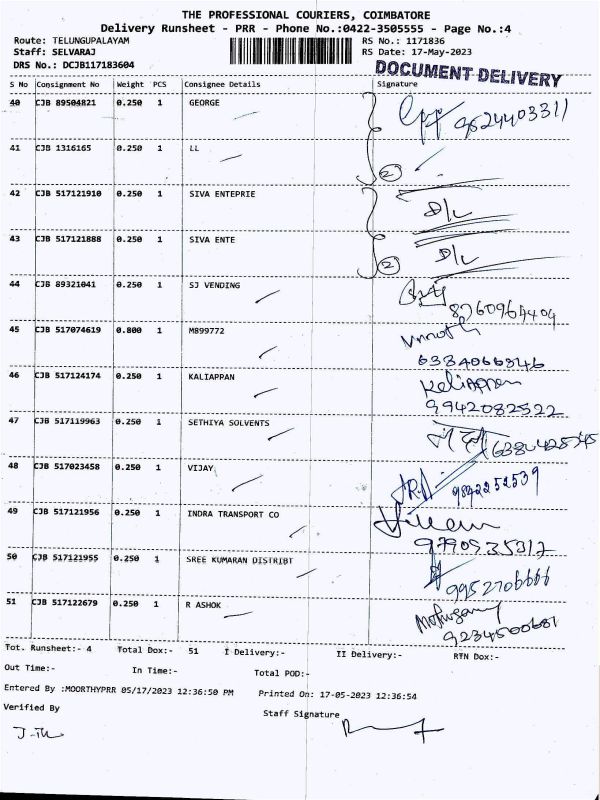 THE PROFESSIONAL COURIERS, COIMBATORE
Delivery Runsheet - PRR - Phone No.:0422-3505555 - Page No.:4
Route: TELUNGUPALAYAM RS No.: 1171836
Staff: SELVARAJ RS Date: 17-May-2023
DRS No.: DCJB117183604 DOCUMENT DELIVERY
S No Consignment No Weight PCS Consignee Details Signature
40 CJB 89504821 0.250 1 GEORGE
41 CJB 1316165 0.250 1 LL
2
42 CJB 517121910 0.250 1 SIVA ENTEPRIE D/L
43 CJB 517121888 0.250 1 SIVA ENTE D/L
2
44 CJB 89321041 0.250 1 SJ VENDING
45 CJB 517074619 0.800 1 M899772
46 CJB 517124174 0.250 1 KALIAPPAN Keliappan
9942082522
47 CJB 517119963 0.250 1 SETHIYA SOLVENTS
48 CJB 517023458 0.250 1 VIJAY 9842252539
49 CJB 517121956 0.250 1 INDRA TRANSPORT CO
50 CJB 517121955 0.250 1 SREE KUMARAN DISTRIBT
9952706666
51 CJB 517122679 0.250 1 R ASHOK
Tot. Runsheet:- 4 Total Dox:- 51 I Delivery:- II Delivery:- RTN Dox:-
Out Time:- In Time:- Total POD:-
Entered By :MOORTHYPRR 05/17/2023 12:36:50 PM Printed On: 17-05-2023 12:36:54
Verified By Staff Signature